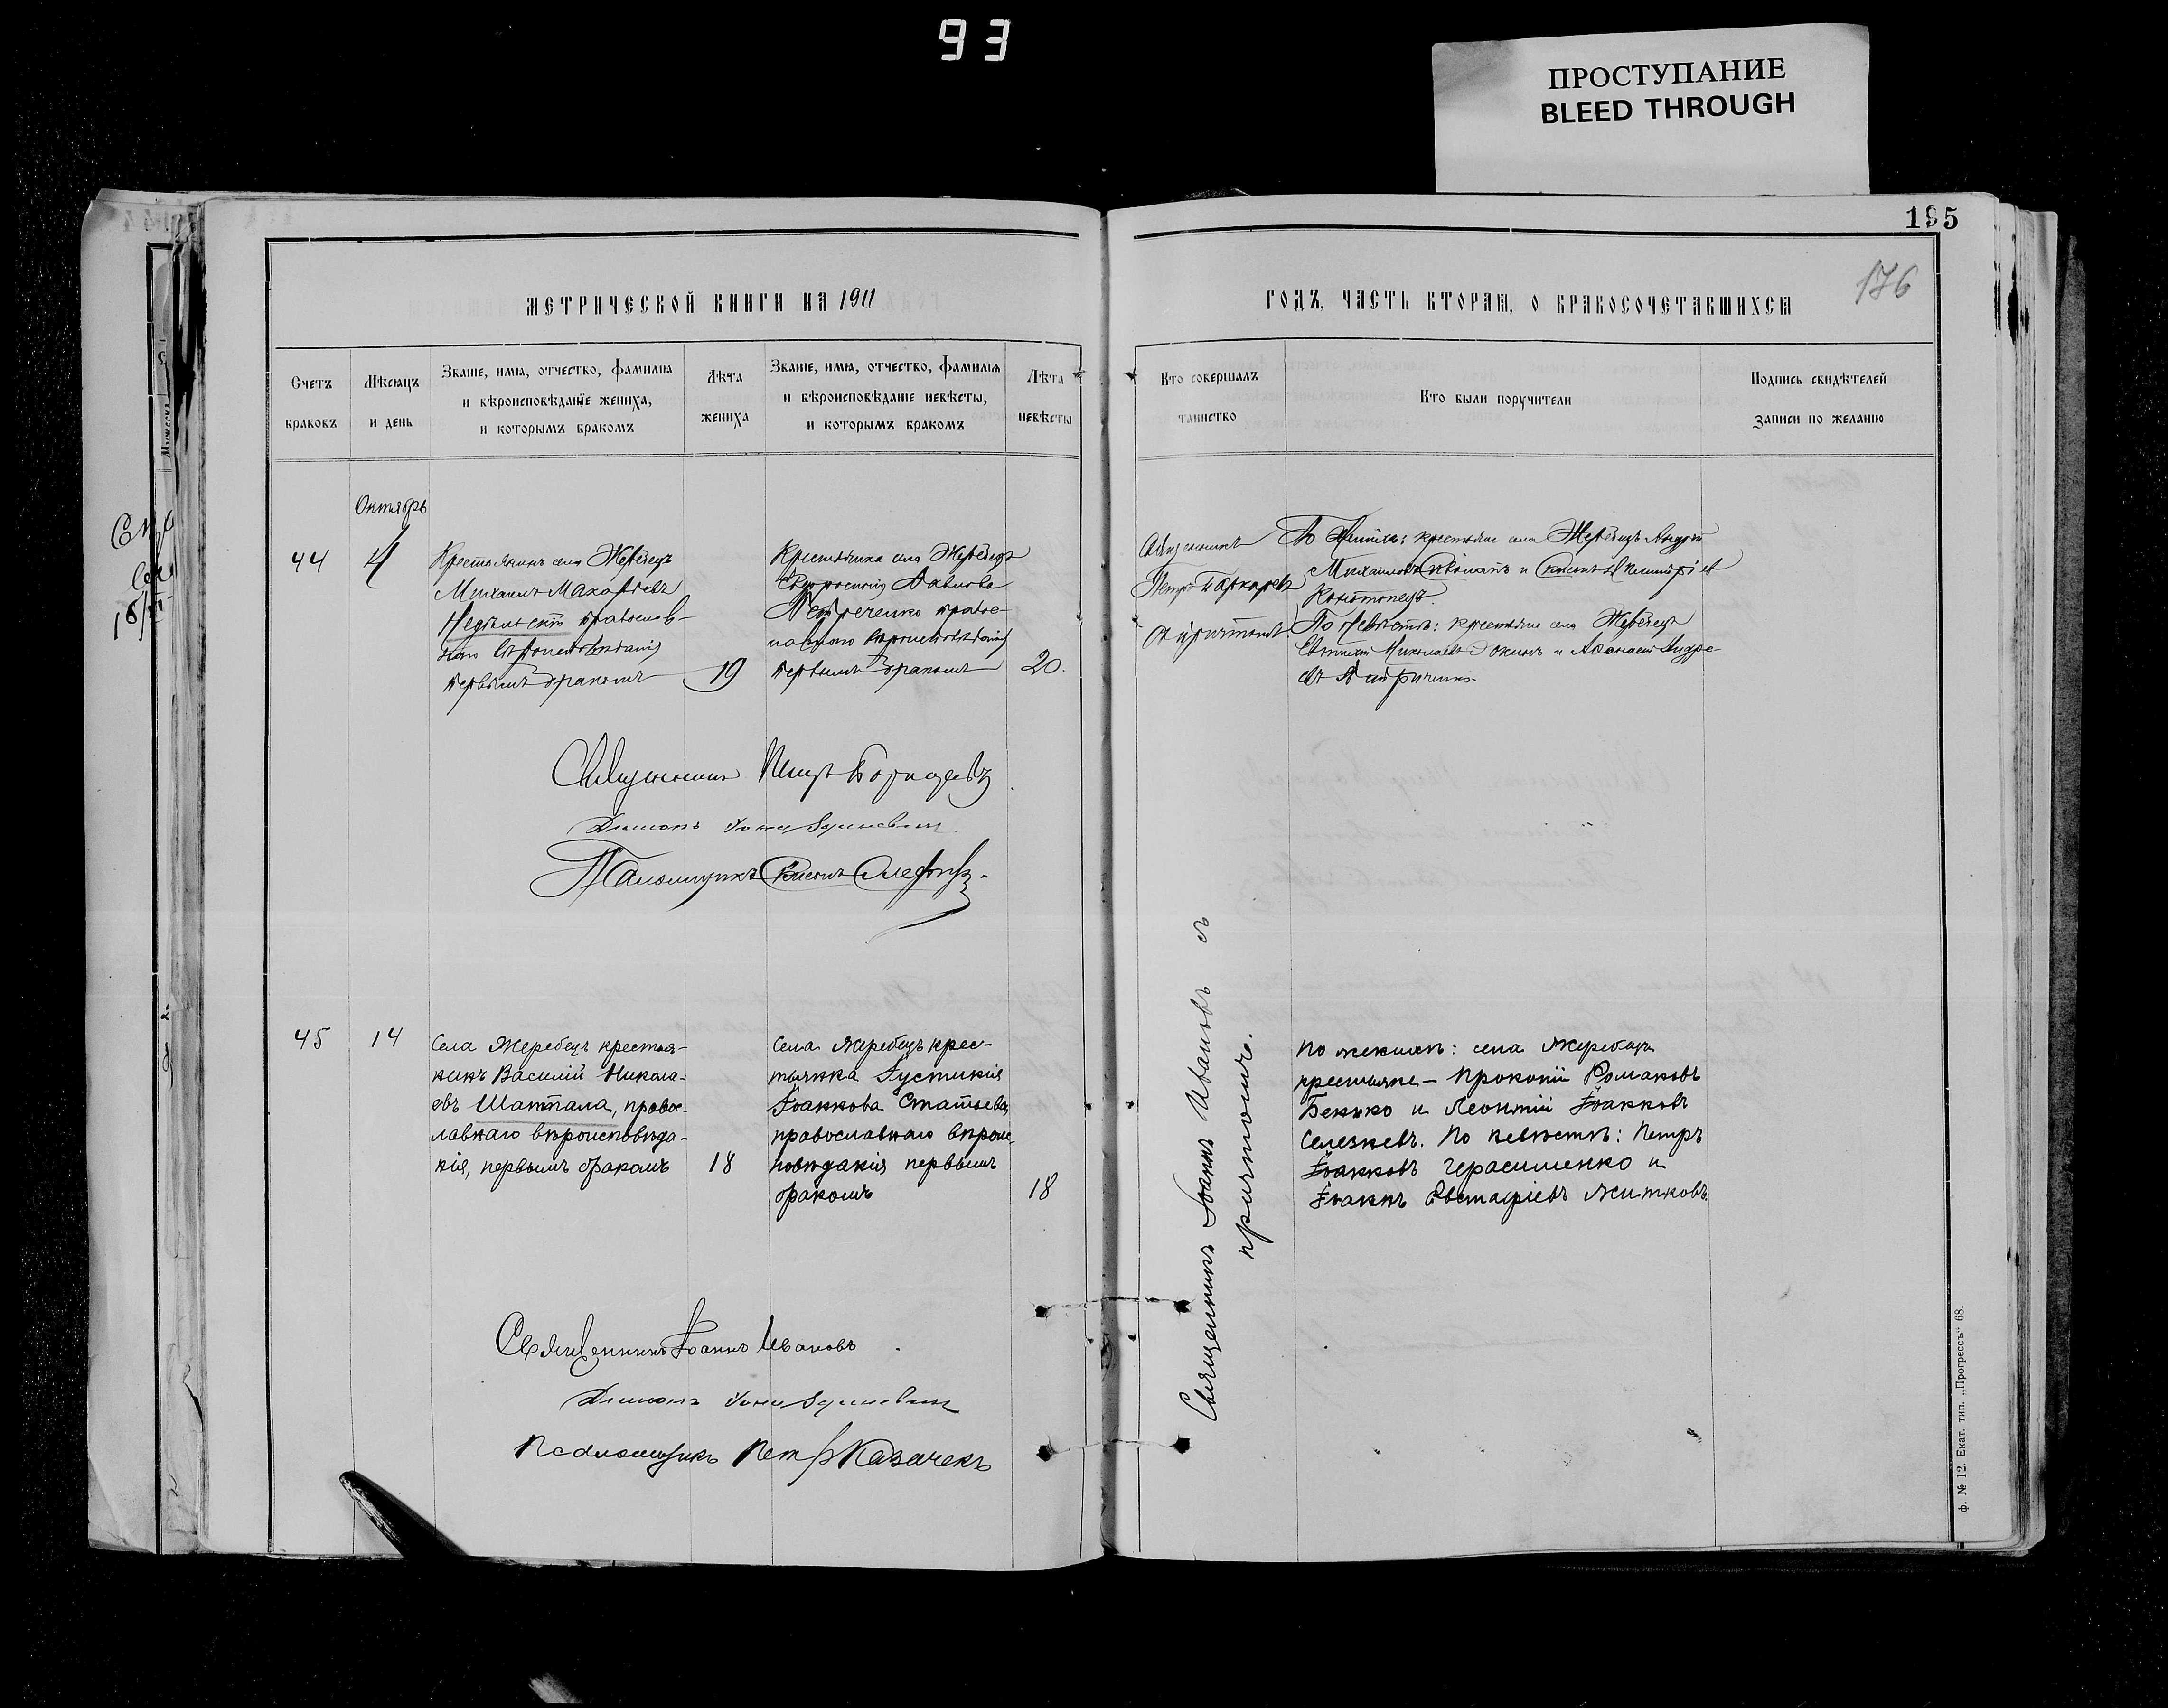 93
ПРОСТУПАНИЕ
BLEED THROUGH
195
176
МЕТРИЧЕСКОЙ КНИГИ НА 1911
ГОДЪ, ЧАСТЬ ВТОРАЯ, О БРАКОСОЧЕТАВШИХСЯ
Счетъ
браковъ
Мѣсяцъ
и день
Званіе, имя, отчество, фамилія
и вѣроисповѣданіе жениха,
и которымъ бракомъ
Лѣта
жениха
Званіе, имя, отчество, фамилія
и вѣроисповѣданіе невѣсты,
и которымъ бракомъ
Лѣта
невѣсты
Кто совершалъ
таинство
Кто были поручители
Подпись свидѣтелей
записи по желанію
Октябрь
44
4
Крестьянинъ села Жеребецъ
Михаилъ Макаріевъ
православ-
наго вѣроисповѣданія
первымъ бракомъ
19
Крестьянка села Жеребецъ
Павлова
Петреченко право-
славнаго вѣроисповѣданія
первымъ бракомъ
20.
Священникъ
Петръ
съ причтомъ.
По женихѣ: крестьяне села Жеребецъ Андрей
Михаиловъ и Симеонъ Димитріевъ
Конотопецъ.
По невѣстѣ: крестьяне села Жеребецъ
Николаевъ и Аѳанасій Андре-
евъ
Священникъ Петръ
Діаконъ
Псаломщикъ Симеонъ
45
14
Села Жеребецъ крестья-
нинъ Василій Никола-
евъ Шаптала, правос-
лавнаго вѣроисповѣда-
нія, первымъ бракомъ
18
Села Жеребецъ крес-
тьянка Іустинія
Іоаннова Статьева,
православнаго вѣроис-
повѣданія первымъ
бракомъ
18
Священникъ Іоаннъ Ивановъ съ
причтомъ.
По женихѣ: села Жеребецъ
крестьяне – Прокопій Романовъ
Бекько и Леонтій Іоанновъ
Селезневъ. По невѣстѣ: Петръ
Іоанновъ Герасименко и
Іоаннъ Евстафіевъ Житковъ
Священникъ Іоаннъ Ивановъ
Діаконъ
Псаломщикъ Петръ Казачекъ
ф. № 12. Екат. тип. „Прогрессъ“ 68.